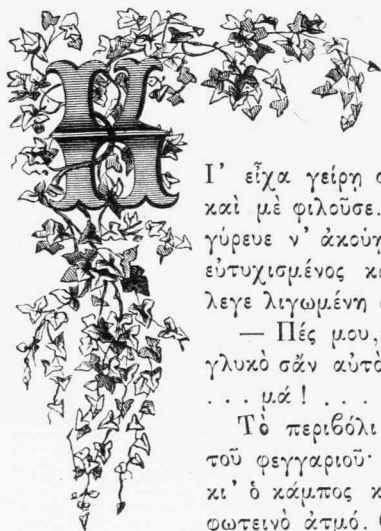 ΚΙ' εἶχα γείρη
καὶ μὲ φιλοῦσε.
γύρευε ν' ἀκούη
εὐτυχισμένος
λεγε λιγωμένη
— Πές μου,
γλυκὸ σἂν αὐτὸ
. . . μά ! . . .
Τὸ περιβόλι
τοῦ φεγγαριοῦ·
κι' ὁ κάμπος
φωτεινὸ ἀτμό.